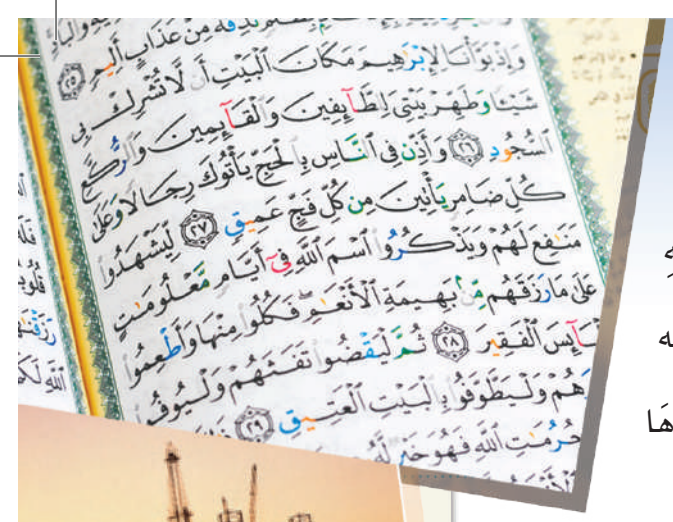 نُذِقْهُ مِنْ عَذَابٍ أَلِيمٍ ٢٥
وَإِذْ بَوَّأْنَا لِإِبْرَٰهِيمَ مَكَانَ ٱلْبَيْتِ أَن لَّا تُشْرِكْ بِى
شَيْـًٔا وَطَهِّرْ بَيْتِىَ لِلطَّآئِفِينَ وَٱلْقَآئِمِينَ وَٱلرُّكَّعِ
ٱلسُّجُودِ ٢٦ وَأَذِّن فِى ٱلنَّاسِ بِٱلْحَجِّ يَأْتُوكَ رِجَالًا وَعَلَىٰ
كُلِّ ضَامِرٍ يَأْتِينَ مِن كُلِّ فَجٍّ عَمِيقٍ ٢٧ لِّيَشْهَدُوا۟
مَنَٰفِعَ لَهُمْ وَيَذْكُرُوا۟ ٱسْمَ ٱللَّهِ فِىٓ أَيَّامٍ مَّعْلُومَٰتٍ
عَلَىٰ مَا رَزَقَهُم مِّنۢ بَهِيمَةِ ٱلْأَنْعَٰمِ ۖ فَكُلُوا۟ مِنْهَا وَأَطْعِمُوا۟
ٱلْبَآئِسَ ٱلْفَقِيرَ ٢٨ ثُمَّ لْيَقْضُوا۟ تَفَثَهُمْ وَلْيُوفُوا۟
نُذُورَهُمْ وَلْيَطَّوَّفُوا۟ بِٱلْبَيْتِ ٱلْعَتِيقِ ٢٩
حُرُمَٰتِ ٱللَّهِ فَهُوَ خَيْرٌ لَّهُۥ
هَا